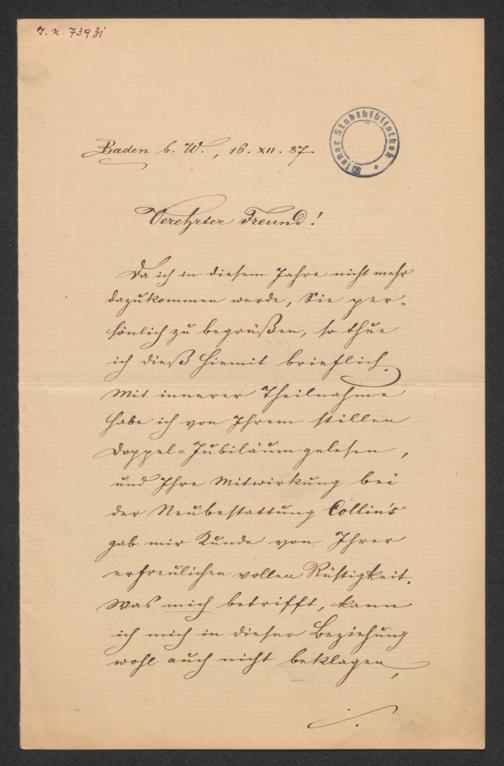 J. N. 7393i
Wiener Stadtbibliothek
Baden b. W., 16. XII. 87.
Verehrter Freund!
Da ich in diesem Jahre nicht mehr
dazukommen werde, Sie per-
sönlich zu begrüßen, so thue
ich dieß hiemit brieflich.
Mit innerer Theilnahme
habe ich von Ihrem stillen
Doppel-Jubiläum gelesen,
und Ihre Mitwirkung bei
der Neubestattung Collin's
gab mir Kunde von Ihrer
erfreulichen vollen Rüstigkeit.
Was mich betrifft, kann
ich mich in dieser Beziehung
wohl auch nicht beklagen,